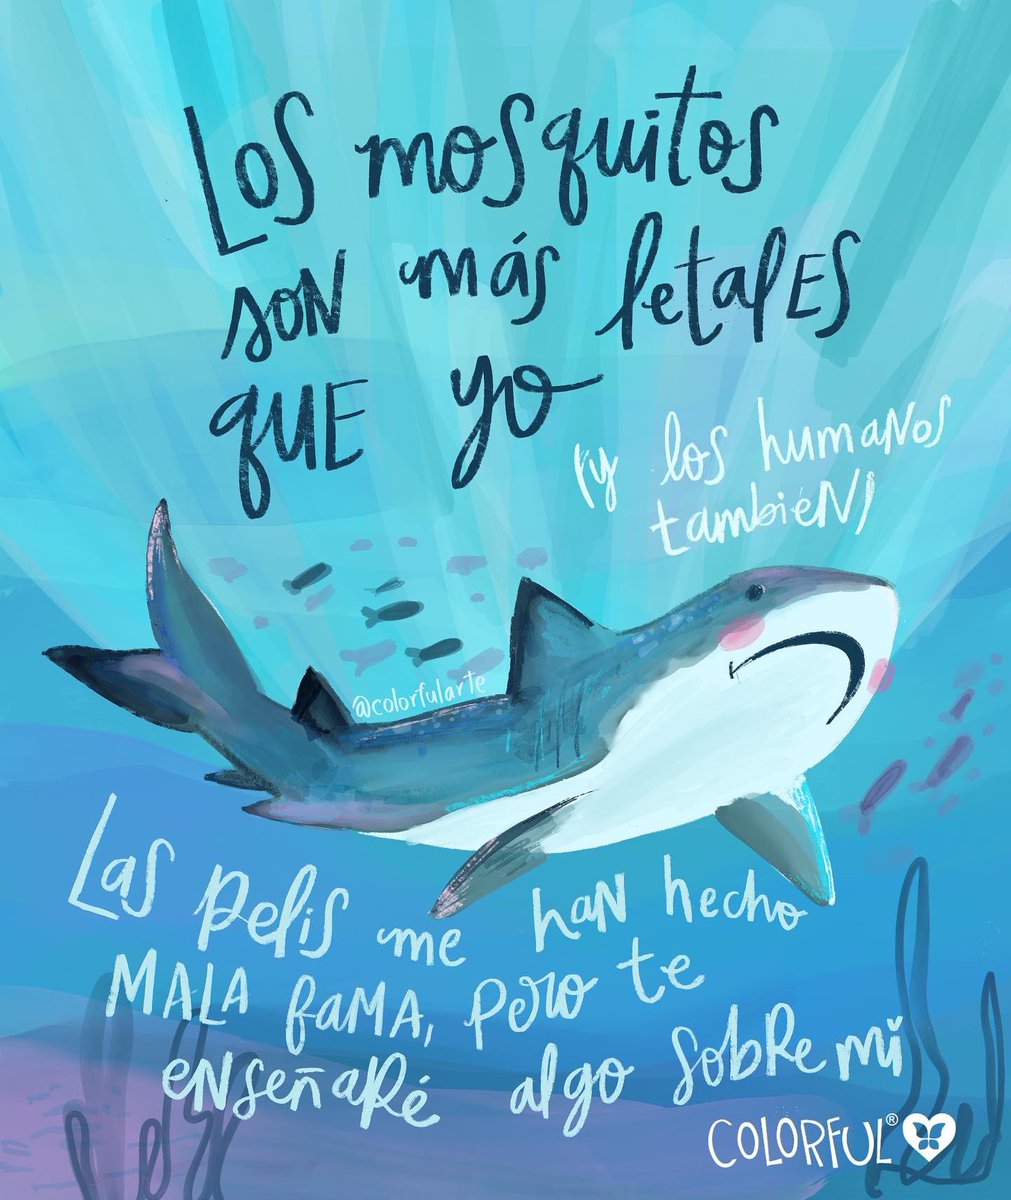 Los mosquitos
son más letales
que yo
(y los humanos
también)
@colorfularte
Las pelis me han hecho
MALA fama, pero te
enseñaré algo sobre mí
COLORFUL®